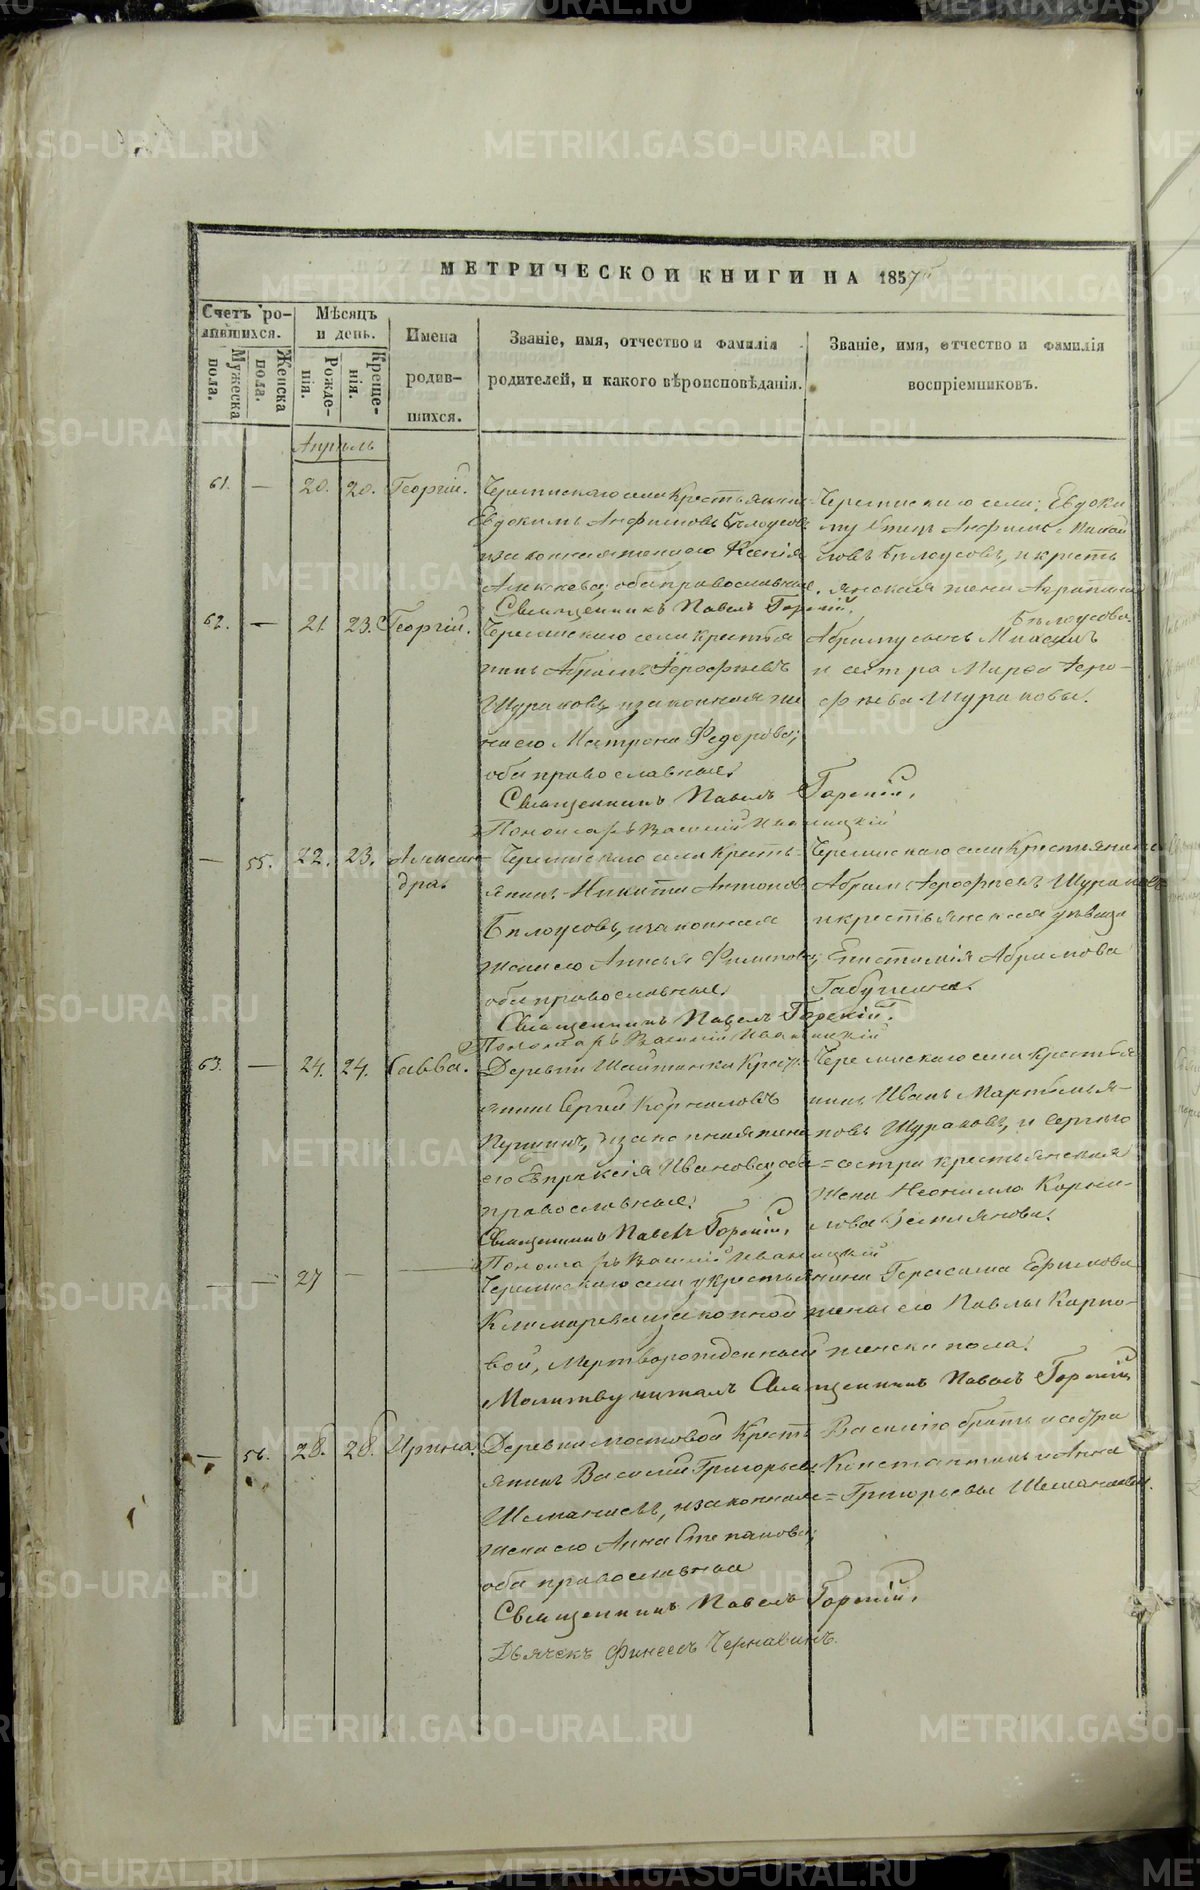 МЕТРИЧЕСКОЙ КНИГИ НА 1857
Счетъ ро-
дившихся.
Мѣсяцъ
и день.
Имена
родив-
шихся.
Званіе, имя, отчество и фамилія
родителей, и какого вѣроисповѣданія.
Званіе, имя, отчество и фамилія
воспріемниковъ.
Мужеска
пола.
Женска
пола.
Рожде-
нія.
Креще-
нія.
Апрѣль
61. — 20. 20. Георгій.
Черемискаго села Крестьянинъ
Евдокимъ Анфимовъ Бѣлоусовъ
и законная жена его Ксенія
Алексѣева; оба православные.
Священникъ Павелъ Горскій.
Черемискаго села; Евдоки
му Анфимъ
ловъ Бѣлоусовъ, и кресть
янская жена Агрипина
Бѣлоусова.
62. — 21 23. Георгій.
Черемискаго села крестья
нинъ Абрамъ Іерофѣевъ
Шураковъ, и законная же
на его Матрона Федорова;
оба православные.
Священникъ Павелъ Горскій.
Пономарь Василій Иваницкій
Абраму сынъ
и сестра Марѳа Іеро-
фѣева Шураковы.
— 55. 22. 23. Алексан-
дра.
Черемискаго села Кресть-
янинъ Никита Антоновъ
Бѣлоусовъ, и законная
жена его Анисья Филипова;
оба православные.
Священникъ Павелъ Горскій.
Пономарь Василій Иваницкій
Черемискаго села Крестьянинъ
Абрамъ Іерофѣевъ Шураковъ
и крестьянская дѣвица
Епистимія Абрамова
Габушина.
63. — 24. 24. Савва.
Деревни Шайтанки Крест-
янинъ Сергій Корниловъ
и законная жена
его Евпраксія Иванова; оба
православные.
Священникъ Павелъ Горскій.
Пономарь Василій Иваницкій
Черемискаго села Крестья
нинъ Иванъ Мартемья-
новъ Шураковъ, и Сергію
сестра крестьянская
жена Неонилла Корни-
лова
— — 27 —
Черемискаго села у крестьянина Герасима Ефимова
и законной жены его Павлы Карпо-
вой, Мертворожденный женска пола.
Молитву читалъ Священникъ Павелъ Горскій
— 56. 28. 28. Ирина.
Деревни Мостовой Крест
янинъ Василій Григорьевъ
Шеманаевъ, и законная
жена его Анна Степанова;
оба православные
Священникъ Павелъ Горскій.
Дьячекъ Финеесъ Чернавинъ.
Василію братъ и сестра
Константинъ и Анна
Григорьевы Шеманаевы.